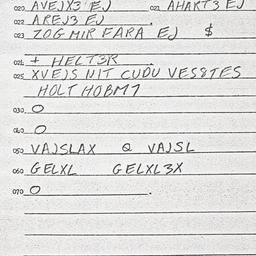 020 AVEJX3 EJ 021 AHART3 EJ
022 AREJ3 EJ .
023 ZOG MIR FARA EJ $
024 + HELT3R
025 XVEJS NIT CUDU VES8TES
HOLT HOBM7
030 O
040 O
050 VAJSLAX Q VAJSL
060 GELXL GELXL3X
070 O .